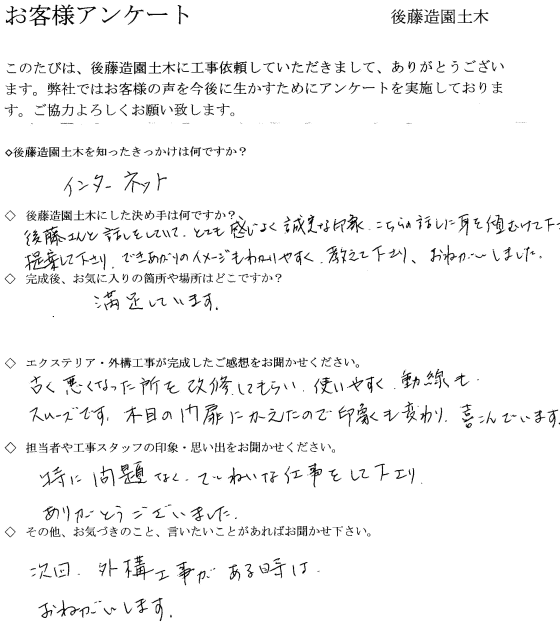 お客様アンケート 後藤造園土木
このたびは、後藤造園土木に工事依頼していただきまして、ありがとうござい
ます。弊社ではお客様の声を今後に生かすためにアンケートを実施しておりま
す。ご協力よろしくお願い致します。
◇後藤造園土木を知ったきっかけは何ですか？
インターネット
◇ 後藤造園土木にした決め手は何ですか？
後藤さんと話しをしていて、とても感じよく誠実な印象、こちらの話しに耳を傾むけて下さ
提案して下さり、できあがりのイメージもわかりやすく、教えて下さり、おねがいしました。
◇ 完成後、お気に入りの箇所や場所はどこですか？
満足しています。
◇ エクステリア・外構工事が完成したご感想をお聞かせください。
古く悪くなった所を改修してもらい、使いやすく、動線も
スムーズです。木目の門扉にかえたので印象も変わり、喜こんでいます
◇ 担当者や工事スタッフの印象・思い出をお聞かせください。
特に問題なく、ていねいな仕事をして下さり、
ありがとうございました。
◇ その他、お気づきのこと、言いたいことがあればお聞かせ下さい。
次回、外構工事がある時は、
おねがいします。